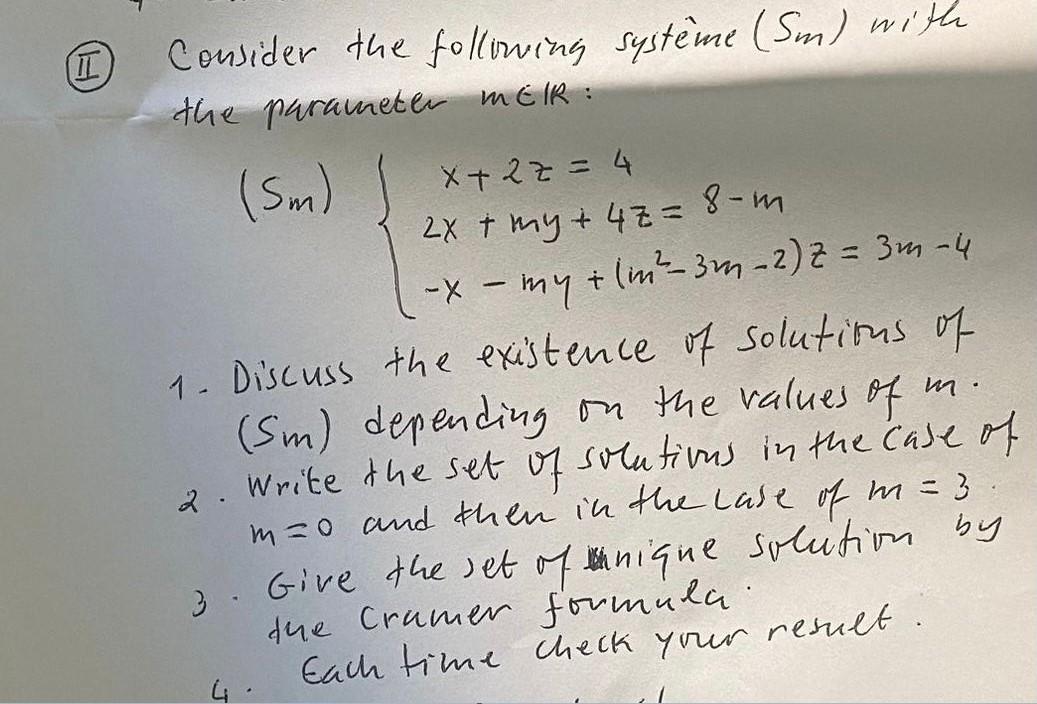 II Consider the following système (Sm) with
the parameter m∈IR :
x + 2z = 4
(Sm) { 2x + my + 4z = 8-m
-x - my + (m²-3m-2)z = 3m-4
1 - Discuss the existence of solutions of
(Sm) depending on the values of m.
2 . Write the set of solutions in the case of
m=0 and then in the case of m = 3 .
3 . Give the set of unique solution by
the Cramer formula .
4 . Each time check your result .